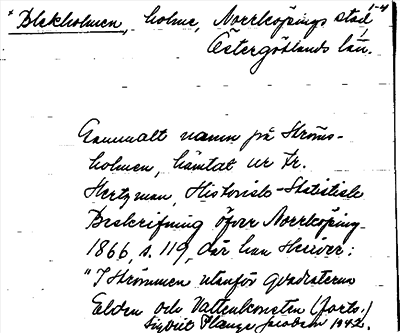 * Blekholmen, holme, Norrköpings stad 1-4
Östergötlands län.
Gammalt namn på Ströms-
holmen, hämtat ur Fr.
Hertzman, Historisk-Statistisk
Beskrifning öfver Norrköping
1866, s. 119, där han skriver:
"I Strömmen utanför quadraterna
Elden och Vattenkonsten (forts.)
Sigurd Planze Jacobsen 1942.